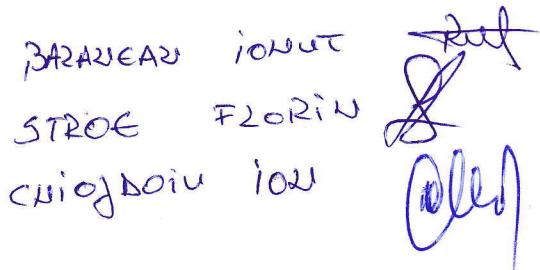 BAZAVEAN IONUT
STROE FLORIN
CHIOJDOIU ION